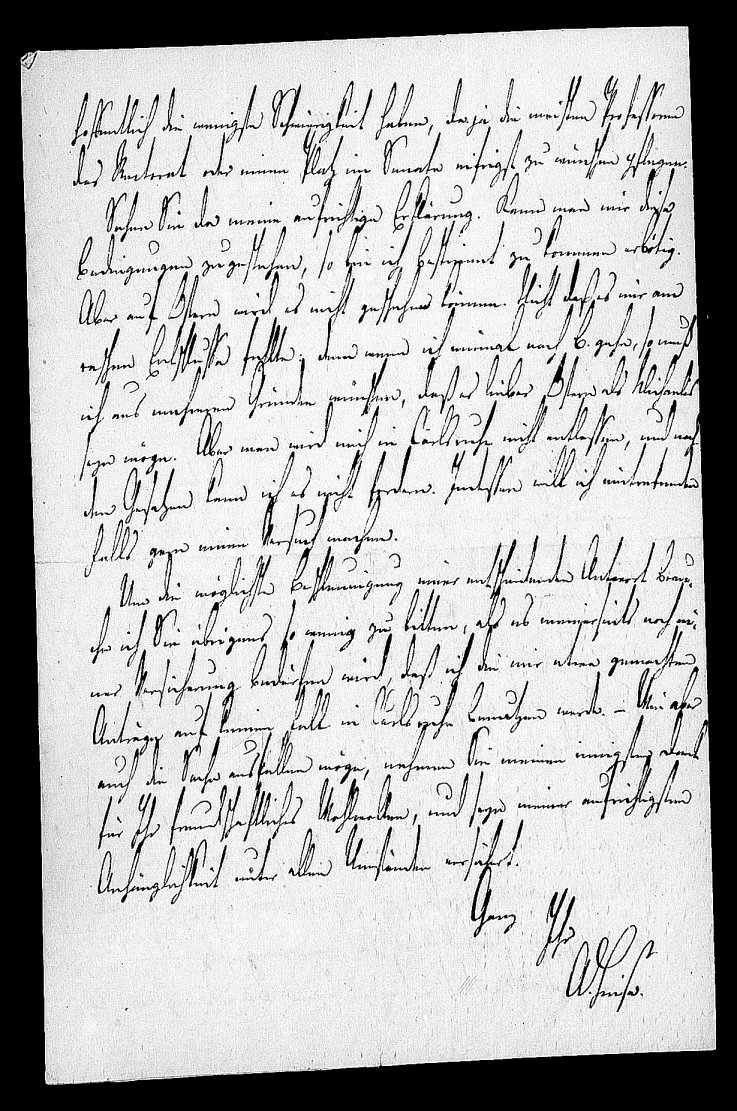 hoffentlich die wenigste Schwierigkeit haben, da ja die meisten Professoren
das Rectorat oder einen Platz im Senate eifrigst zu wünschen pflegen.
Sehen Sie da meine aufrichtige Erklärung. Kann man mir diese
Bedingungen zugestehen, so bin ich bestimmt zu kommen erbötig.
Aber auf Ostern wird es nicht geschehen können. Nicht daß es mir am
raschen Entschlusse fehlte; denn wenn ich einmal nach B. gehe, so muß
ich aus mehreren Gründen wünschen, daß es lieber Ostern als Michaelis
seyn möge. Aber man wird mich in Carlsruhe nicht entlassen, und nach
den Gesetzen kann ich es nicht fordern. Indessen will ich eintretenden
Falls gern einen Versuch machen.
Um die möglichste Beschleunigung einer entscheidenden Antwort brau-
che ich Sie übrigens so wenig zu bitten, als es meinerseits noch ei-
ner Versicherung bedürfen wird, daß ich die mir etwa gemachten
Anträge auf keinen Fall in Carlsruhe benutzen werde. – Wie aber
auch die Sache ausfallen möge, nehmen Sie meinen innigsten Dank
für Ihr freundschaftliches Wohlwollen, und seyn meiner aufrichtigsten
Anhänglichkeit unter allen Umständen versichert.
Ganz Ihr